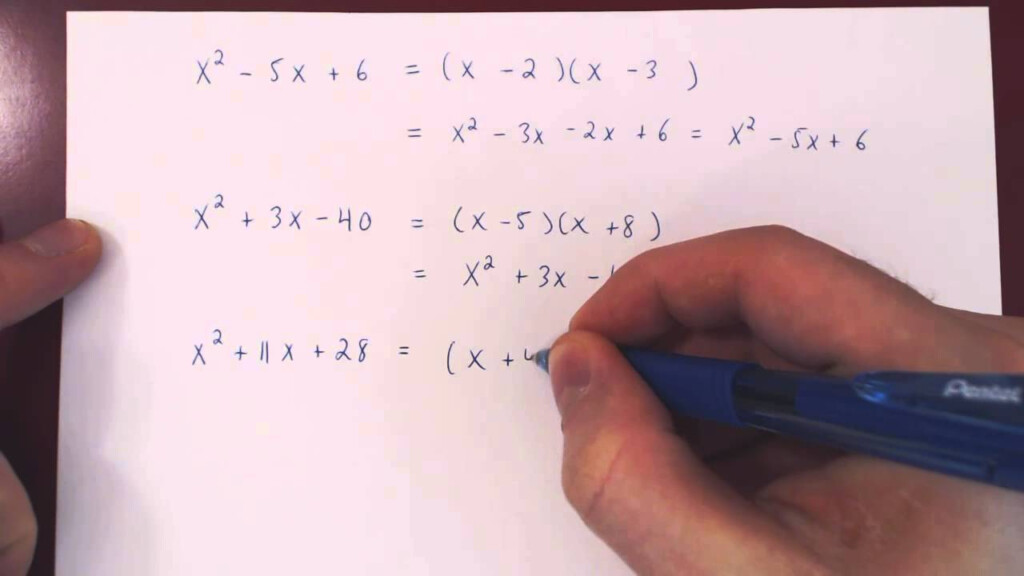 x² - 5x + 6 = (x - 2)(x - 3)
= x² - 3x - 2x + 6 = x² - 5x + 6
x² + 3x - 40 = (x - 5)(x + 8)
= x² + 3x -
x² + 11x + 28 = (x + 4
Pentel